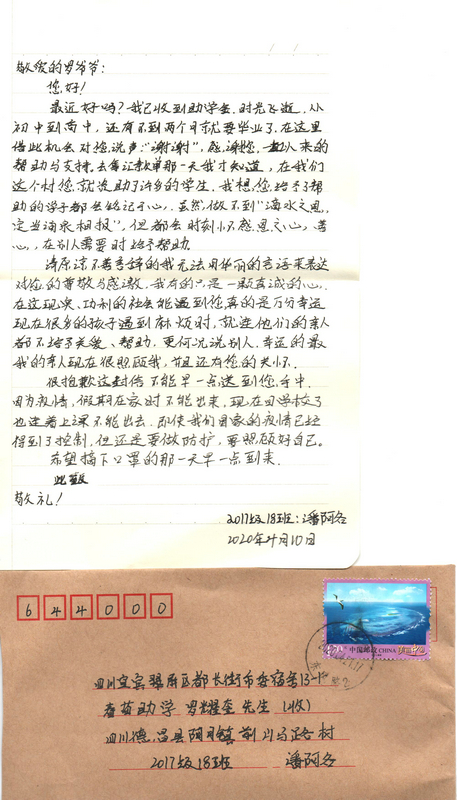 敬爱的罗爷爷：
您好！
最近好吗？我已收到助学金。时光飞逝，从
初中到高中，还有不到两个月就要毕业了，在这里
借此机会对您说声：“谢谢”，感谢您一直以来的
帮助与支持。去年汇款单那一天我才知道，在我们
这个村您就资助了许多的学生，我想，您给予了帮
助的学子都会铭记于心，虽然做不到“滴水之恩，
定当涌泉相报”，但都会时刻怀感恩之心，善
心，在别人需要时给予帮助。
请原谅不善言辞的我无法用华丽的言语来表达
对您的尊敬与感激，我有的只是一颗真诚的心。
在这现实、功利的社会能遇到您真的是万分幸运
现在很多的孩子遇到麻烦时，就连他们的亲人
都不给予关爱、帮助，更何况说别人。幸运的是
我的亲人现在很照顾我，并且还有您的关怀。
很抱歉这封信不能早一点送到您手中，
因为疫情，假期在家时不能出来，现在回学校了
也连着上课不能出去，即使我们国家的疫情已经
得到了控制，但还是要做防护，要照顾好自己。
希望摘下口罩的那一天早一点到来。
此致
敬礼！
2017级18班：潘阿各
2020年4月10日
644000
中国邮政 CHINA
四川宜宾翠屏区都长街市委宿舍13-1
春苗助学 罗耀奎 先生（收）
四川德昌县
2017级18班 潘阿各